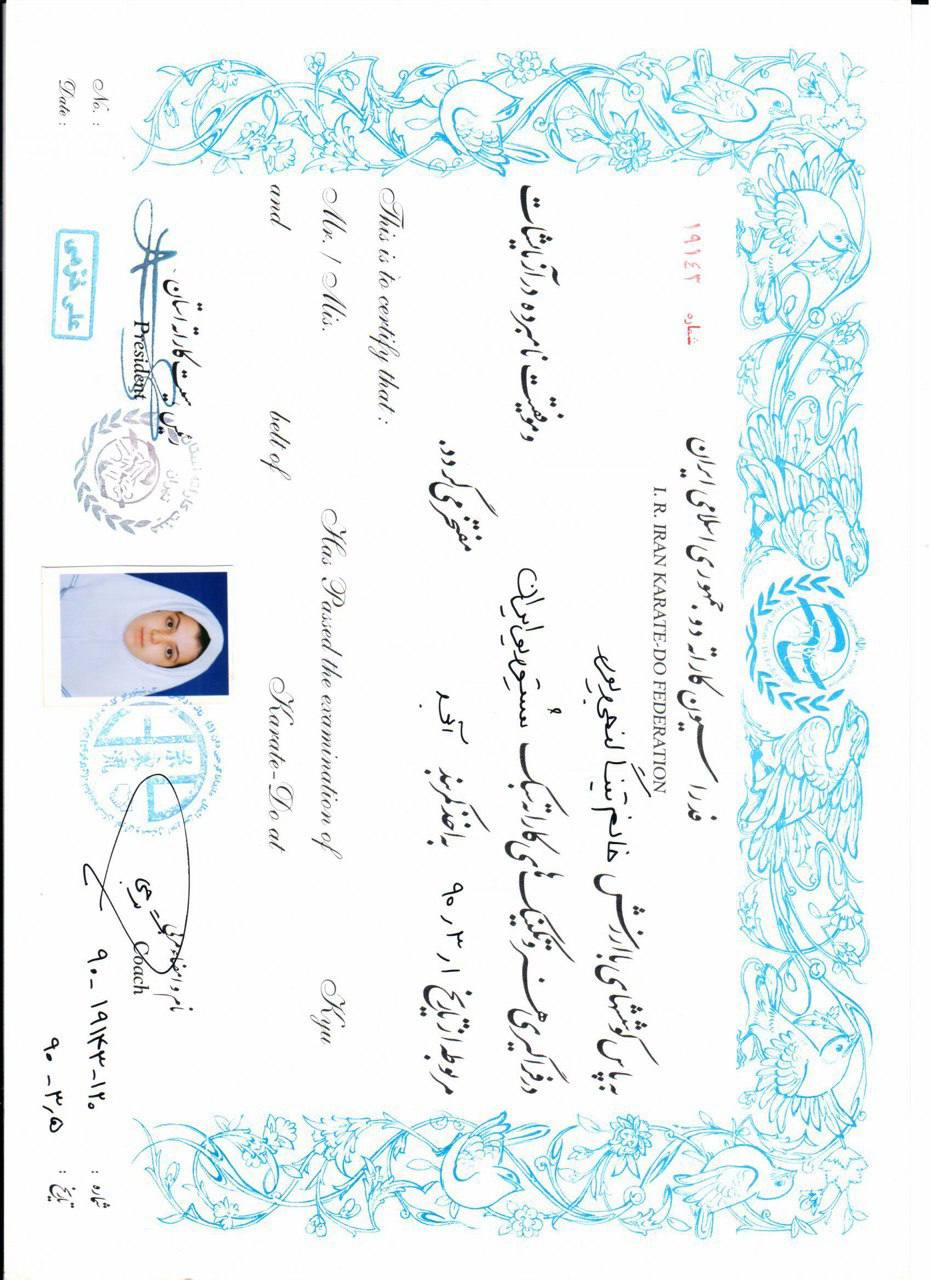 فدراسیون کاراته دو جمهوری اسلامی ایران
شماره ۱۹۱۴۳
I. R. IRAN KARATE-DO FEDERATION
به پاس کوششهای با ارزش خانم تینا
در فراگیری هنر و تکنیک های کاراته سبک شیتوریو ایران و موفقیت نامبرده در آزمایشات
مربوطه از تاریخ ۹۰٫۳٫۱ به اخذ کمربند آبی مفتخر می گردد.
This is to certify that :
Mr. / Mis. Has Passed the examination of Kyu
and belt of Karate-Do at
رئیس هیئت کاراته استان
President
هیئت کاراته استان
تهران
نام و امضاء مربی
Coach
No. :
Date :
علی خزمی
شماره : ۹۰-۱۹۱۴۳-۱۲۰
تاریخ : ۹۰-۳٫۵